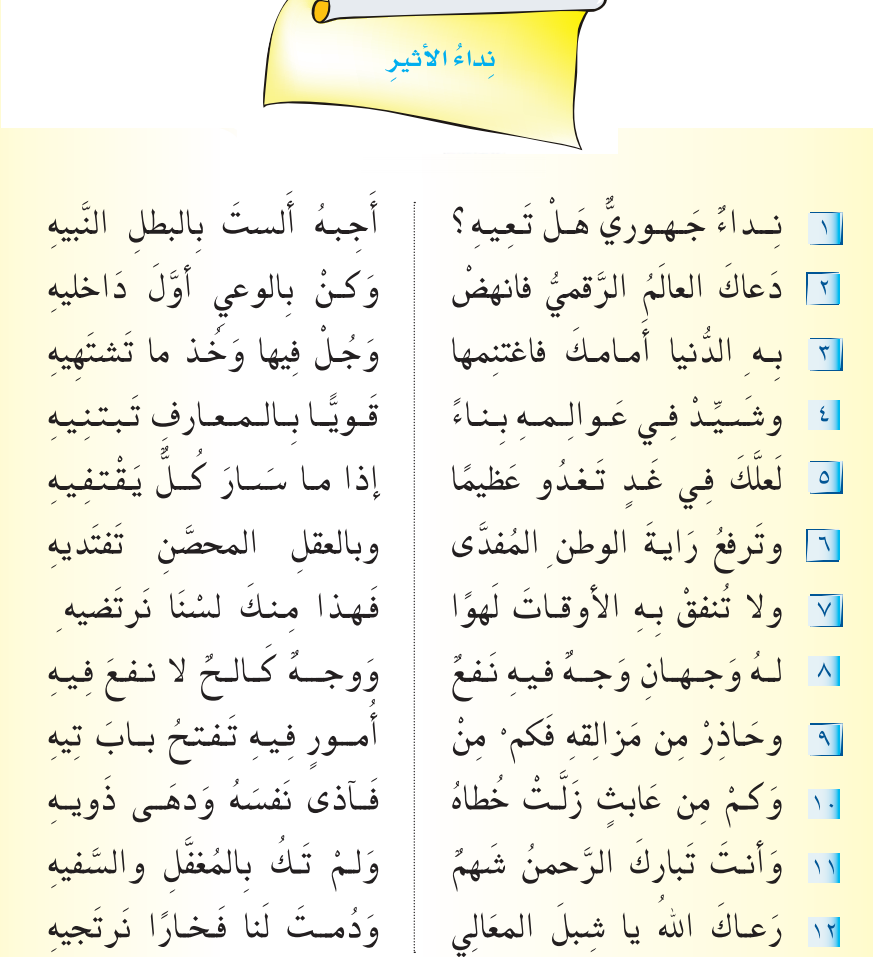 نِداءُ الأثيرِ
١ نِــداءٌ جَـهـوريٌّ هَـلْ تَـعِـيـهِ؟ أَجِـبـهُ أَلستَ بِالبطلِ النَّبيهِ
٢ دَعاكَ العالَمُ الرَّقميُّ فانهضْ وَكـنْ بِالوعيِ أوَّلَ دَاخليهِ
٣ بـهِ الدُّنيا أَمامكَ فاغتنِمها وَجُلْ فِيها وَخُذ ما تَشتَهِيهِ
٤ وشَـيِّـدْ فِـي عَـوالِـمـهِ بِـنـاءً قَـويًّـا بِـالـمـعـارفِ تَـبـتـنِـيـهِ
٥ لَعلَّكَ فِي غَـدٍ تَـغدُو عَظيمًا إذا مـا سَـارَ كُــلٌّ يَـقْـتـفِـيـهِ
٦ وتَرفعُ رَايـةَ الوطنِ المُفدَّى وبالعقلِ المحصَّنِ تَفتَديهِ
٧ ولا تُنفقْ بـهِ الأوقـاتَ لَهوًا فَـهـذا مِـنـكَ لسْنَا نَرتَضيهِ
٨ لـهُ وَجـهـانِ وَجـهٌ فـيـهِ نَـفـعٌ وَوجـــهٌ كَـالـحٌ لا نـفـعَ فِـيـهِ
٩ وحَـاذِرْ مِن مَزالِقهِ فَكمْ مِنْ أُمــورٍ فِـيـهِ تَـفـتـحُ بــابَ تِيهِ
١٠ وَكـمْ مِن عَابثٍ زَلَّـتْ خُطاهُ فَـآذى نَفسَهُ وَدهَـى ذَويــهِ
١١ وَأنـتَ تَبـاركَ الرَّحمنُ شَهمٌ وَلـمْ تَـكُ بِالمُغفَّلِ والسَّفيهِ
١٢ رَعـاكَ اللهُ يا شِبلَ المعَالِي وَدُمــتَ لَنا فَـخـارًا نَرتَجيهِ